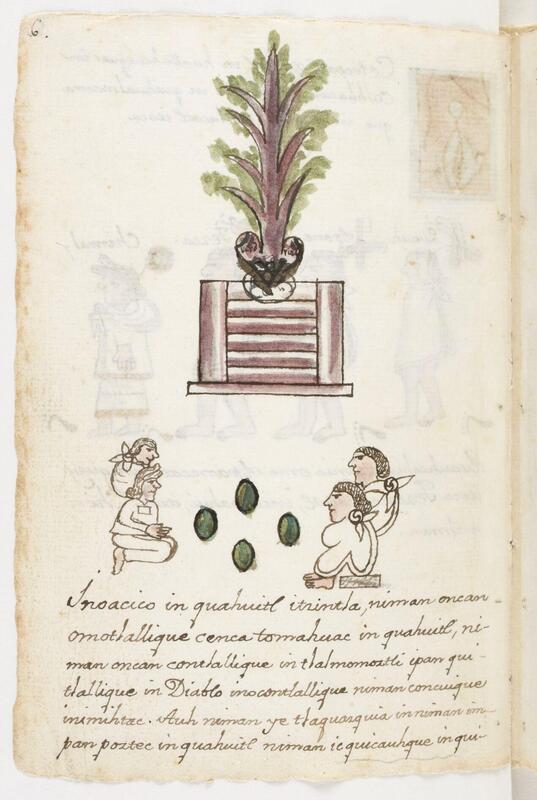 6.
Inoacico in quahuitl itzintla, niman oncan
omotlallique cenca tomahuac in quahuitl, ni-
man oncan contlallique in tlalmomoztli ipan qui-
tlallique in Diablo inocontlallique niman concuique
inimihtac. Auh niman ye tlaquazquia inniman im-
pan poztec in quahuitl niman ic quicauhque in qui-